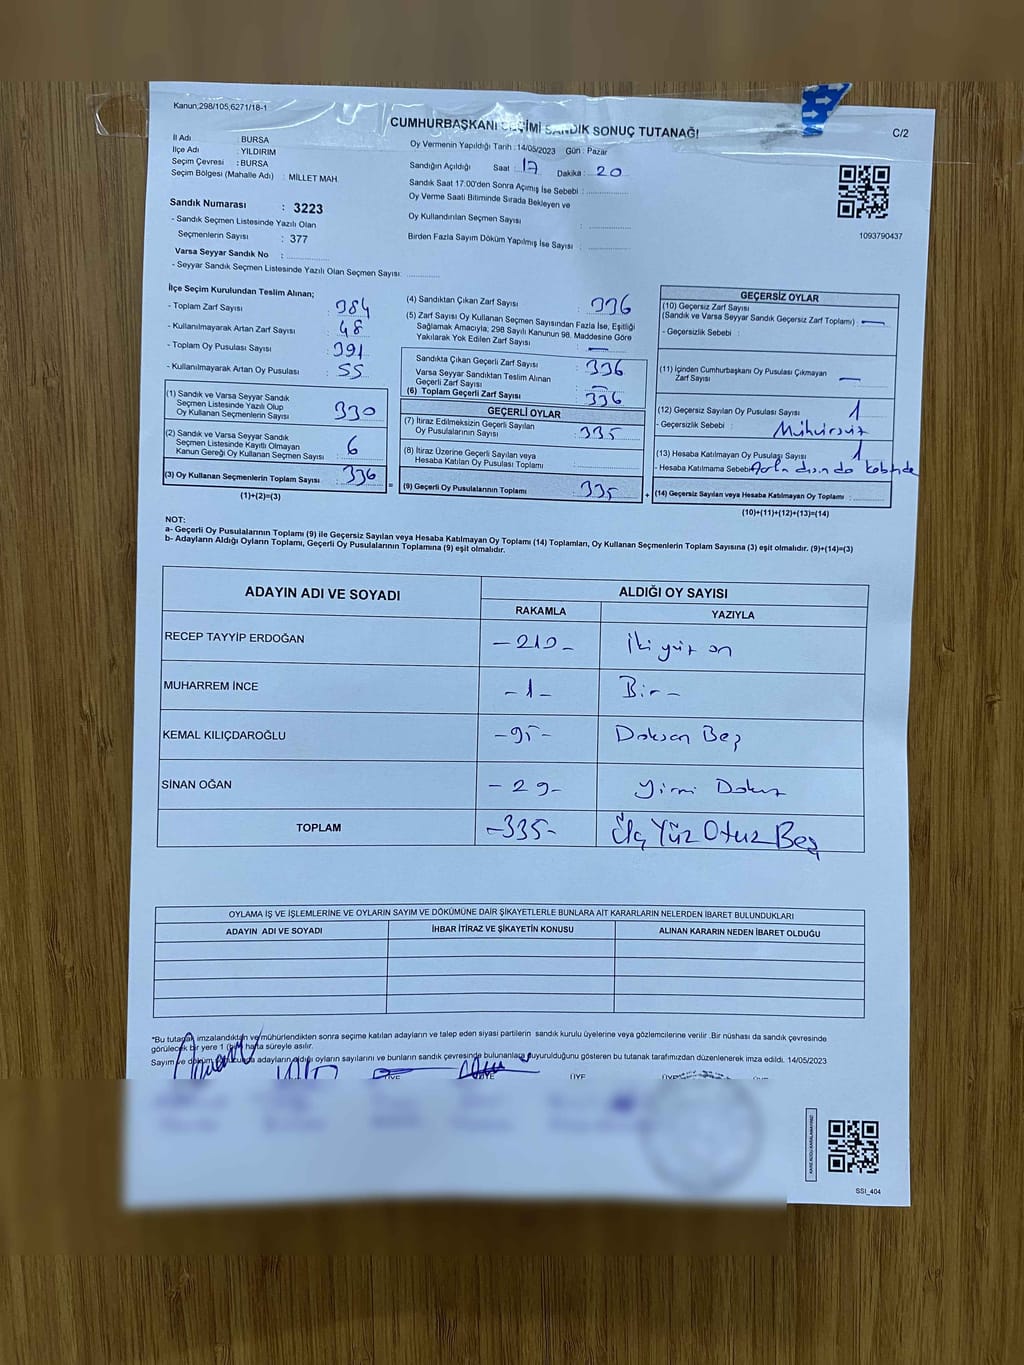 Kanun;298/105,6271/18-1
CUMHURBAŞKANI SEÇİMİ SANDIK SONUÇ TUTANAĞI
C/2
İl Adı : BURSA
İlçe Adı : YILDIRIM
Seçim Çevresi : BURSA
Seçim Bölgesi (Mahalle Adı) : MİLLET MAH.
Sandık Numarası : 3223
- Sandık Seçmen Listesinde Yazılı Olan
Seçmenlerin Sayısı : 377
Varsa Seyyar Sandık No :
- Seyyar Sandık Seçmen Listesinde Yazılı Olan Seçmen Sayısı:
Oy Vermenin Yapıldığı Tarih : 14/05/2023 Gün : Pazar
Sandığın Açıldığı Saat : 17 Dakika : 20
Sandık Saat 17:00'den Sonra Açımış İse Sebebi :
Oy Verme Saati Bitiminde Sırada Bekleyen ve
Oy Kullandırılan Seçmen Sayısı :
Birden Fazla Sayım Döküm Yapılmış İse Sayısı :
1093790437
İlçe Seçim Kurulundan Teslim Alınan;
- Toplam Zarf Sayısı : 384
- Kullanılmayarak Artan Zarf Sayısı : 48
- Toplam Oy Pusulası Sayısı : 391
- Kullanılmayarak Artan Oy Pusulası : 55
(1) Sandık ve Varsa Seyyar Sandık
Seçmen Listesinde Yazılı Olup
Oy Kullanan Seçmenlerin Sayısı : 330
(2) Sandık ve Varsa Seyyar Sandık
Seçmen Listesinde Kayıtlı Olmayan
Kanun Gereği Oy Kullanan Seçmen Sayısı : 6
(3) Oy Kullanan Seçmenlerin Toplam Sayısı : 336
(1)+(2)=(3)
(4) Sandıktan Çıkan Zarf Sayısı : 336
(5) Zarf Sayısı Oy Kullanan Seçmen Sayısından Fazla İse, Eşitliği
Sağlamak Amacıyla; 298 Sayılı Kanunun 98. Maddesine Göre
Yakılarak Yok Edilen Zarf Sayısı : —
Sandıkta Çıkan Geçerli Zarf Sayısı : 336
Varsa Seyyar Sandıktan Teslim Alınan
Geçerli Zarf Sayısı : —
(6) Toplam Geçerli Zarf Sayısı : 336
=
GEÇERLİ OYLAR
(7) İtiraz Edilmeksizin Geçerli Sayılan
Oy Pusulalarının Sayısı : 335
(8) İtiraz Üzerine Geçerli Sayılan veya
Hesaba Katılan Oy Pusulası Toplamı :
(9) Geçerli Oy Pusulalarının Toplamı : 335
+
GEÇERSİZ OYLAR
(10) Geçersiz Zarf Sayısı
(Sandık ve Varsa Seyyar Sandık Geçersiz Zarf Toplamı) : —
- Geçersizlik Sebebi :
(11) İçinden Cumhurbaşkanı Oy Pusulası Çıkmayan
Zarf Sayısı : —
(12) Geçersiz Sayılan Oy Pusulası Sayısı : 1
- Geçersizlik Sebebi : Mühürsüz
(13) Hesaba Katılmayan Oy Pusulası Sayısı : 1
- Hesaba Katılmama Sebebi
(14) Geçersiz Sayılan veya Hesaba Katılmayan Oy Toplamı :
(10)+(11)+(12)+(13)=(14)
NOT:
a- Geçerli Oy Pusulalarının Toplamı (9) ile Geçersiz Sayılan veya Hesaba Katılmayan Oy Toplamı (14) Toplamları, Oy Kullanan Seçmenlerin Toplam Sayısına (3) eşit olmalıdır. (9)+(14)=(3)
b- Adayların Aldığı Oyların Toplamı, Geçerli Oy Pusulalarının Toplamına (9) eşit olmalıdır.
ADAYIN ADI VE SOYADI
ALDIĞI OY SAYISI
RAKAMLA YAZIYLA
RECEP TAYYİP ERDOĞAN -210- İki yüz on
MUHARREM İNCE -1- Bir-
KEMAL KILIÇDAROĞLU -95- Doksan Beş
SİNAN OĞAN -29- Yirmi Dokuz
TOPLAM -335- Üç Yüz Otuz Beş
OYLAMA İŞ VE İŞLEMLERİNE VE OYLARIN SAYIM VE DÖKÜMÜNE DAİR ŞİKAYETLERLE BUNLARA AİT KARARLARIN NELERDEN İBARET BULUNDUKLARI
ADAYIN ADI VE SOYADI İHBAR İTİRAZ VE ŞİKAYETİN KONUSU ALINAN KARARIN NEDEN İBARET OLDUĞU
"Bu tutanak imzalandıktan ve mühürlendikten sonra seçime katılan adayların ve talep eden siyasi partilerin sandık kurulu üyelerine veya gözlemcilerine verilir .Bir nüshası da sandık çevresinde
görülecek bir yere 1 (bir) hafta süreyle asılır.
Sayım ve döküm sonucunda adayların aldığı oyların sayılarını ve bunların sandık çevresinde bulunanlara duyurulduğunu gösteren bu tutanak tarafımızdan düzenlenerek imza edildi. 14/05/2023
ÜYE ÜYE ÜYE ÜYE ÜYE
SSI_404